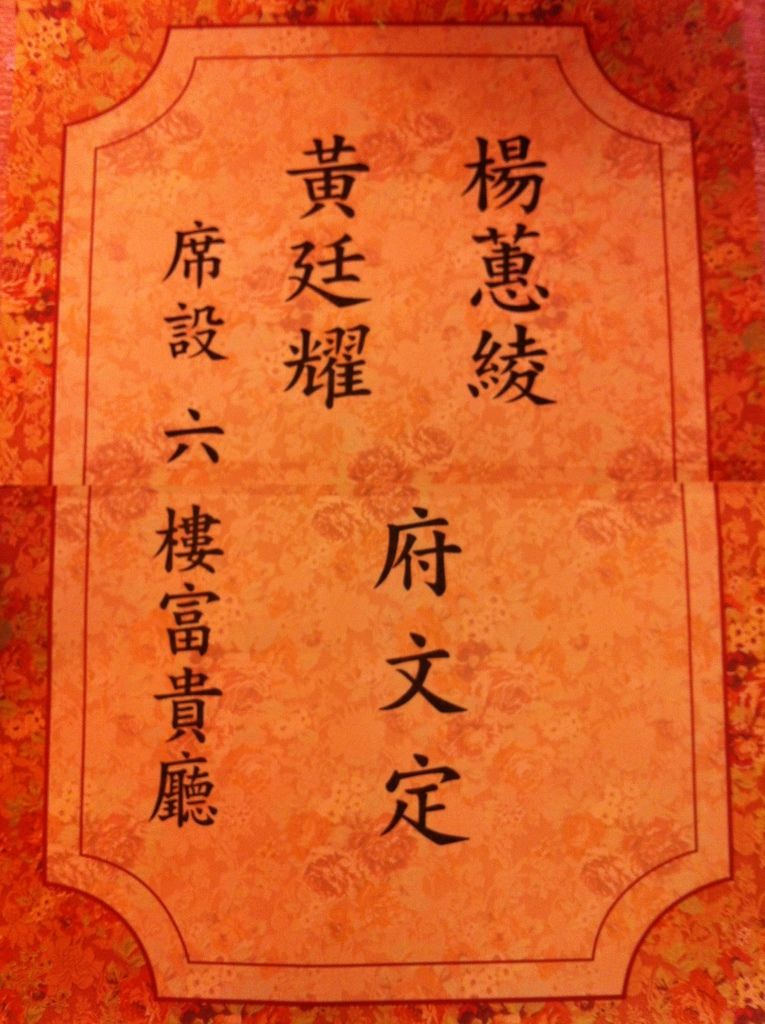 楊蕙綾
黃廷耀
府文定
席設六樓富貴廳